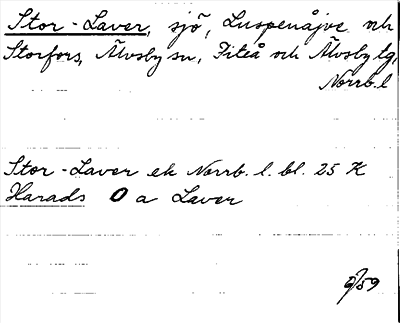 Stor-Laver, sjö, Luspenåjve och
Storfors, Älvsby sn, Piteå och Älvsby tg,
Norrb. l
Stor-Laver ek Norrb. l. bl. 25 K
Harads O a Laver
/59